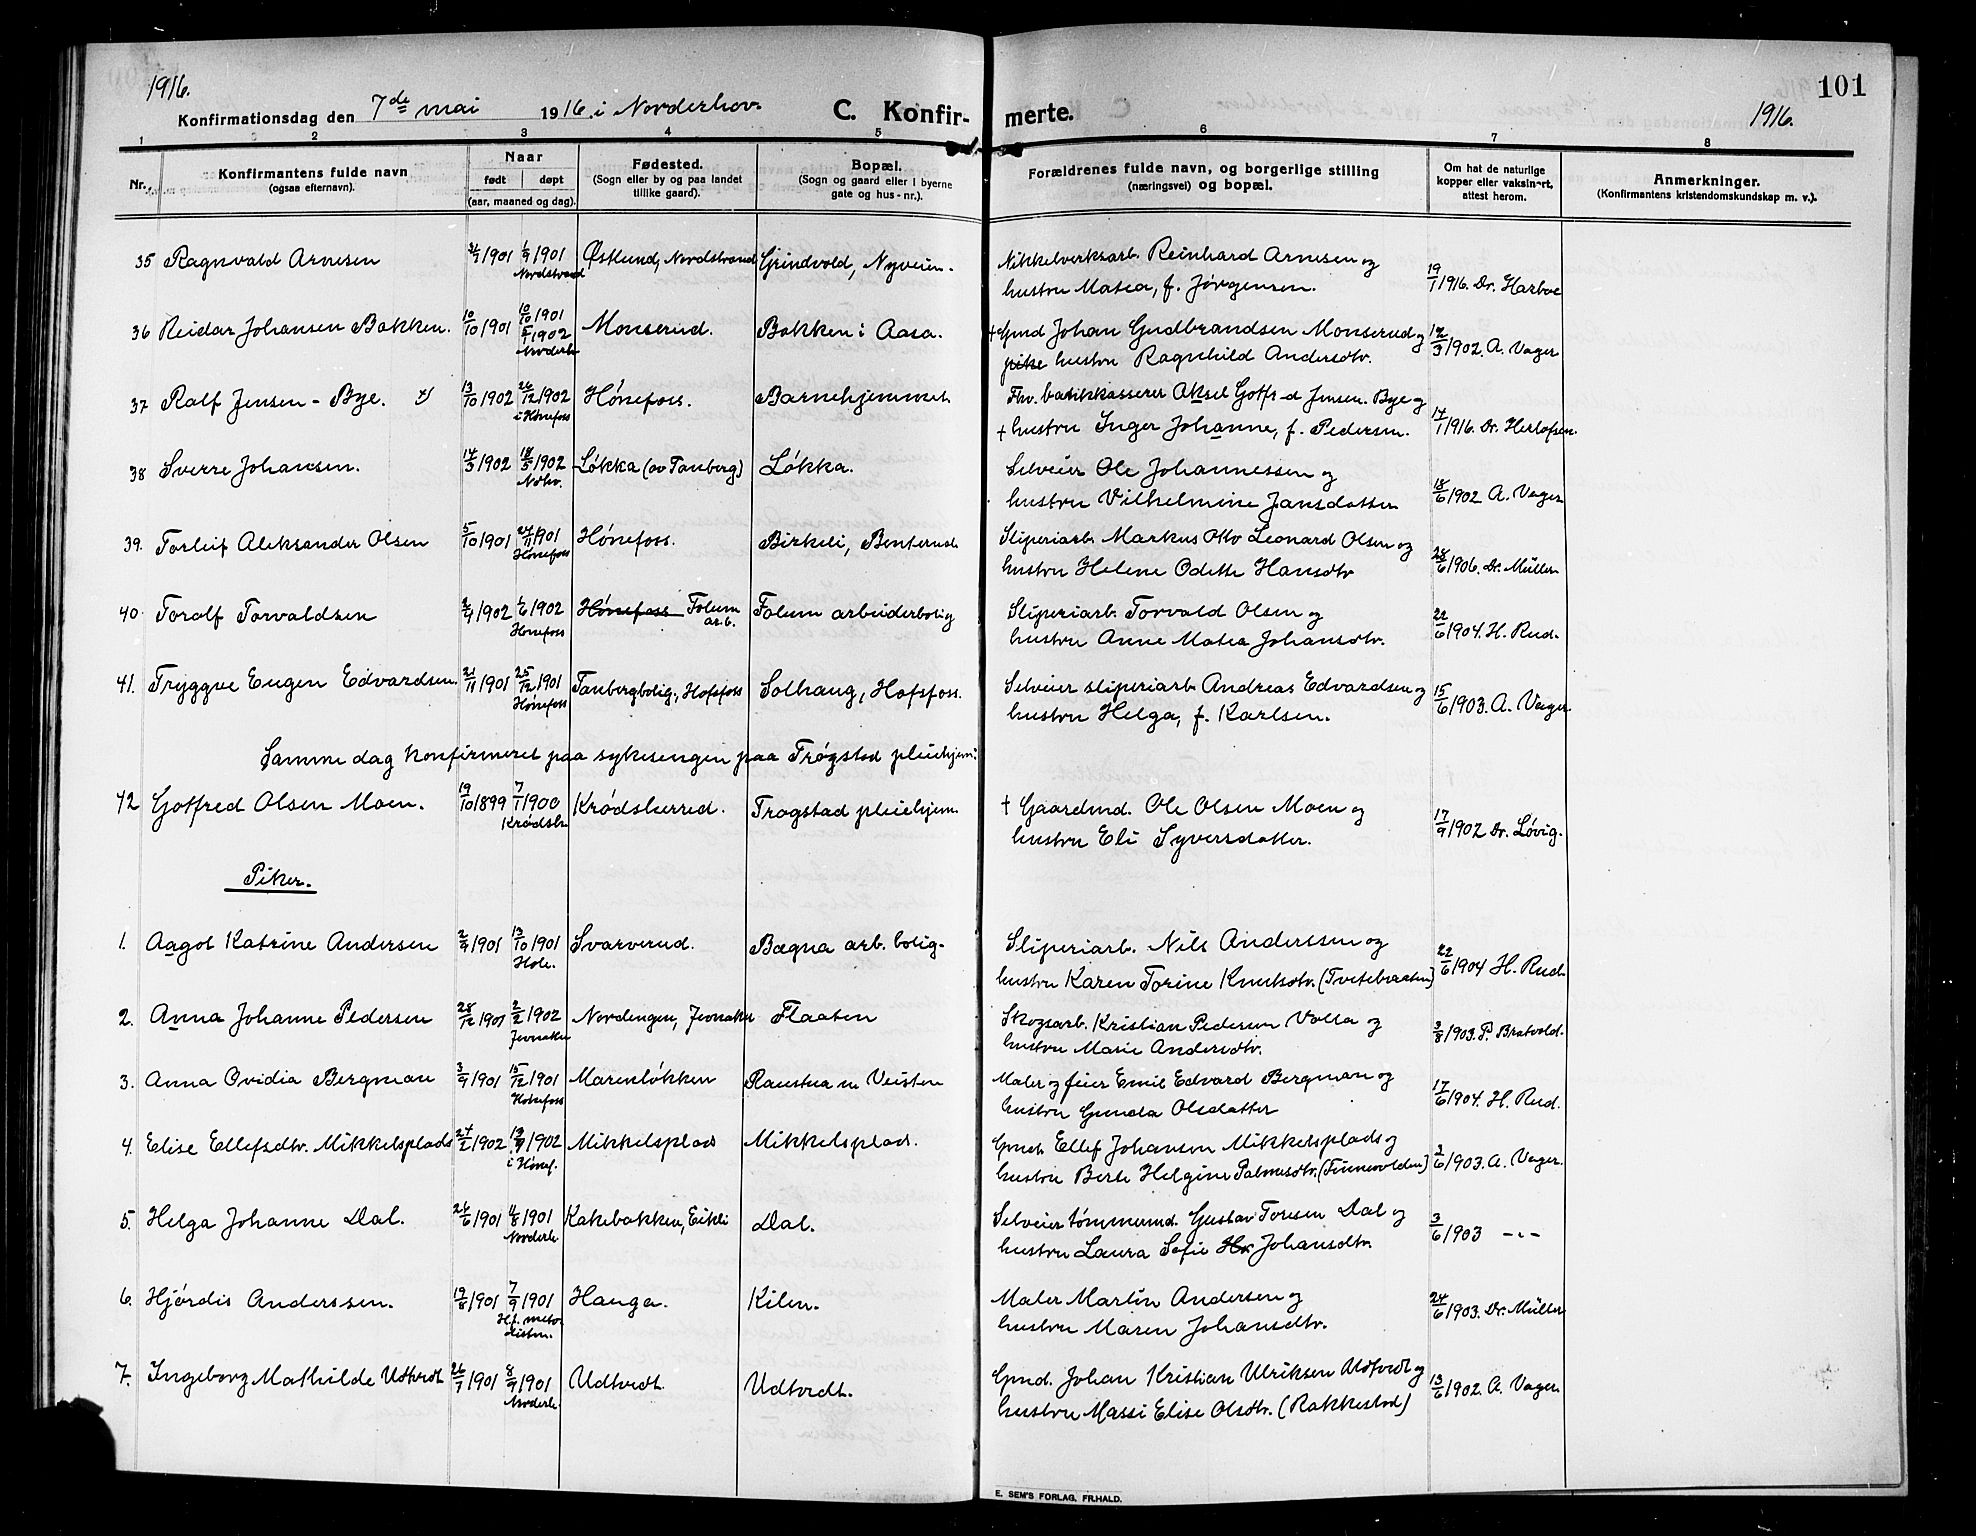 1916.
101
Konfirmationsdag den 7de mai 1916. i Norderhov.
C. Konfirmerte.
1916.
1 2 3 4 5 6 7 8
Nr.
Konfirmantens fulde navn
(ogsaa efternavn).
Naar
født døpt
(aar, maaned og dag).
Fødested.
(Sogn eller by og paa landet
tillike gaard).
Bopæl.
(Sogn og gaard eller i byerne
gate og hus-nr.).
Forældrenes fulde navn, og borgerlige stilling
(næringsvei) og bopæl.
Om hat de naturlige
kopper eller vaksinert,
attest herom.
Anmerkninger.
(Konfirmantens kristendomskundskap m. v.).
35 Ragnvald Arnesen 1901 1901 Østlund, Nordstrand Grindvold, Nyveien. Nikkelverksarb. Reinhard Arnesen og
Nordstrand
hustru Matea, f. Jørgensen. 19/1 1916. Dr. Harboe
36 Reidar Johansen Bakken. 10/10 1901 10/10 1901 Monserud. Bakken i Aasa. † Gmd Johan Gudbrandsen Monserud og
1902 Norderh
pike hustru Ragnhild Andersdtr. 12/3 1902. A. Vager
37 Ralf Jensen-Bye. 13/10 1902 26/12 1902 Hønefoss. Barnehjemmet Fhv. bankkasserer Aksel Gotfr-d Jensen-Bye og
i Hønefoss
† hustru Inger Johanne, f. Pedersen. 14/1 1916. Dr. Herlofsen.
38 Sverre Johansen. 14/3 1902 18/5 1902 Løkka (av Tanberg) Løkka. Selveier Ole Johannessen og
Ndhv.
hustru Vilhelmine Jansdatter 18/6 1902 A. Vager
39. Torleif Aleksander Olsen 5/10 1901 24/11 1901 Hønefoss. Birkeli, Benterud. Sliperiarb Markus Otto Leonard Olsen og
Hønefoss
hustru Helene Odette Hansdtr 28/6 1906. Dr. Müller
40. Torolf Torvaldsen 2/4 1902 1/6 1902 Hønefoss Folum Folum arbeiderbolig Sliperiarb. Torvald Olsen og
Hønefoss ar.b.
hustru Anne Matea Johansdtr. 22/6 1904. H. Rud.
41. Tryggve Eugen Edvardsen. 21/11 1901 25/12 1901 Tanbergbolig, Hofsfoss Solhaug, Hofsfoss. Selveier sliperiarb Andreas Edvardsen og
Hønefoss
hustru Helga, f. Karlsen. 15/6 1903. A. Vager.
Samme dag konfirmeret paa sykesengen paa Trøgstad pleiehjem:
42 Gotfred Olsen Moen. 19/10 1899 7/1 1900 Krødsherred. Trøgstad pleiehjem. † Gaardmd. Ole Olsen Moen og
Krødsh.
hustru Eli Syversdatter. 17/9 1902 Dr. Løvig.
Piker.
1. Aagot Katrine Andersen 2/9 1901 13/10 1901 Svarverud. Bægna arb. bolig. Sliperiarb. Nils Anderssen og
Hole.
hustru Karen Torine Knutsdtr. (Tvetebraaten) 22/6 1904 H. Rud.
2. Anna Johanne Pedersen 28/12 1901 2/2 1902 Nordengen, Jevnaker Flaaten Skogsarb. Kristian Pedersen Volla og
Jevnaker
hustru Marie Andersdtr. 3/8 1903. P. Bratvold.
3. Anna Ovidia Bergman 3/9 1901 15/12 1901 Marenløkken Raustua n Veisten Maler og feier Emil Edvard Bergman og
Hønefoss
hustru Gunda Olsdatter 17/6 1904. H. Rud.
4. Elise Ellefsdtr. Mikkelsplads 24/2 1902 1902 Mikkelsplads Mikkelsplads. Gmd. Ellef Johanson Mikkelsplads og
i Hønef.
hustru Berte Helgine Palmesdtr. (Finnevolden) 3/6 1903. A. Vager.
5. Helga Johanne Dal. 26/6 1901 4/8 1901 Kakebakken, Eikli Dal. Selveier tømmermd. Gustav Torsen Dal og
Norderh
hustru Laura Sofie Johansdtr. 3/6 1903 -"-
6. Hjørdis Anderssen. 19/8 1901 7/9 1901 Hauga. Kilen. Maler Martin Andersen og
Hf. meto
disten.
hustru Maren Johansdtr. 24/6 1903. Dr. Müller
7. Ingeborg Mathilde Udtvedt 26/7 1901 8/9 1901 Udtvedt. Udtvedt. Gmd. Johan Kristian Ulriksen Udtvedt og
Norderh.
hustru Massi Elise Olsdtr. (Rakkestad) 13/6 1902. A. Vager.
E. SEM'S FORLAG, FR.HALD.